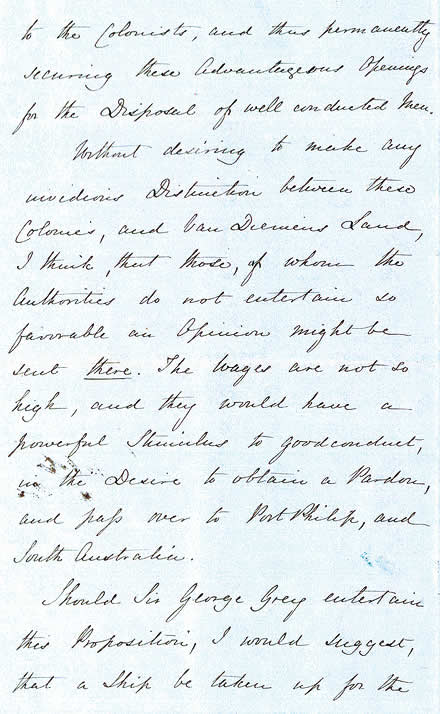 to the Colonists, and thus permanently
securing these Advantageous Openings
for the Disposal of well conducted Men.
Without desiring to make any
invedious Distinction between these
Colonies, and Van Diemens Land,
I think, that those, of whom the
Authorities do not entertain so
favorable an Opinion might be
sent there. The Wages are not so
high, and they would have a
powerful Stimulus to good conduct,
in the Desire to obtain a Pardon,
and pass over to Port Philip, and
South Australia.
Should Sir George Grey entertain
this Proposition, I would suggest,
that a Ship be taken up for the